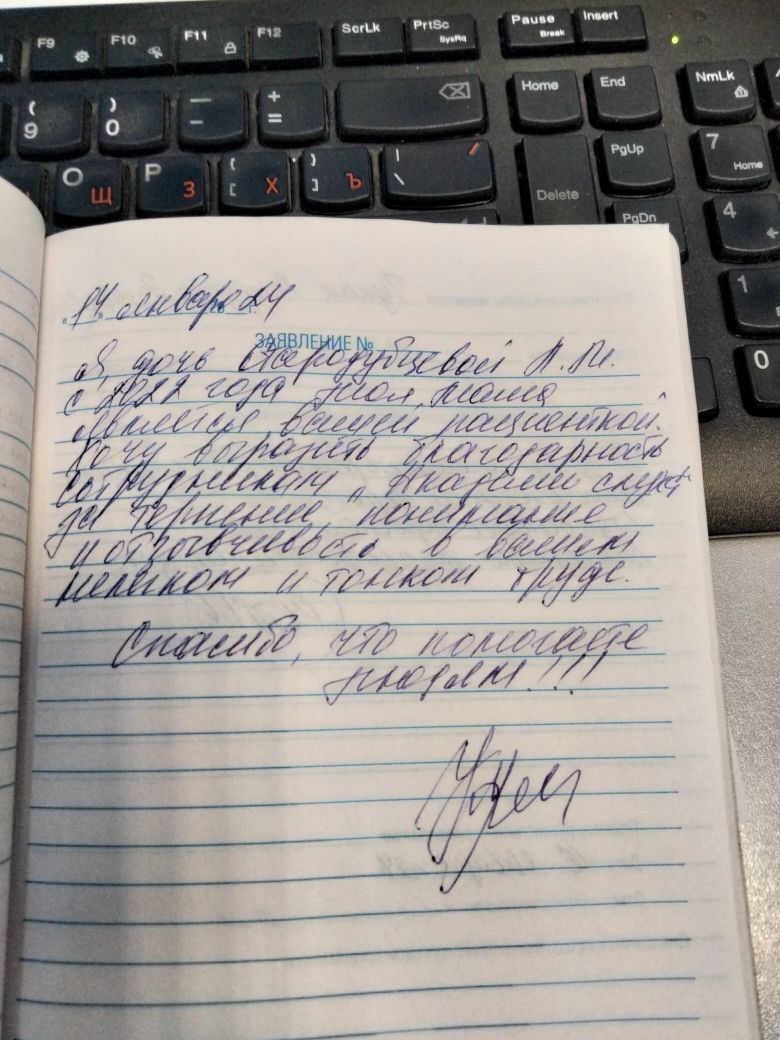 F9 F10 F11 F12 ScrLk PrtSc SysRq Pause Break Insert
( 9 ) 0 — - + = Home End NmLk
O Щ P З { [ Х } ] Ъ | \ / Delete PgUp 7 Home
PgDn 4
1
0
"14" января 24
ЗАЯВЛЕНИЕ №
Я, дочь Стародубцевой Л. М.
с 2022 года моя мама
является вашей пациенткой.
Хочу выразить благодарность
сотрудникам "Академии слуха"
за терпение, понимание
и отзывчивость в вашем
нелегком и тонком труде.
Спасибо, что помогаете
людям!!!